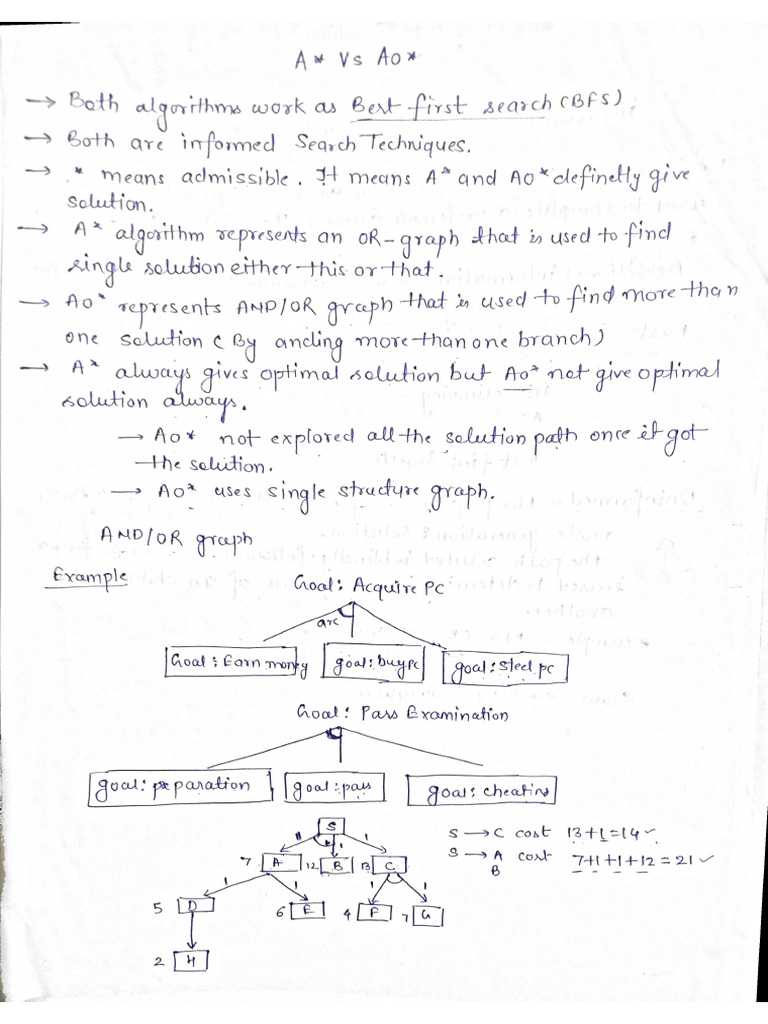 A* Vs AO*
→ Both algorithms work as Best first search (BFS).
→ Both are informed Search Techniques.
→ * means admissible. It means A* and AO* definetly give
solution.
→ A* algorithm represents an OR-graph that is used to find
single solution either this or that.
→ AO* represents AND/OR graph that is used to find more than
one solution (By anding more than one branch)
→ A* always gives optimal solution but AO* not give optimal
solution always.
→ AO* not explored all the solution path once it got
the solution.
→ AO* uses single structure graph.
AND/OR graph
Example
Goal: Acquire PC
arc
Goal: Earn money goal: buy pc goal: steel pc
Goal: Pass Examination
goal: preparation goal: pass goal: cheating
S
1 1
S → C cost 13+1=14 ✓
S → A cost 7+1+1+12=21 ✓
B
7 A 12 B 13 C
1 1 1 1
5 D 6 E 4 F 7 G
2 H